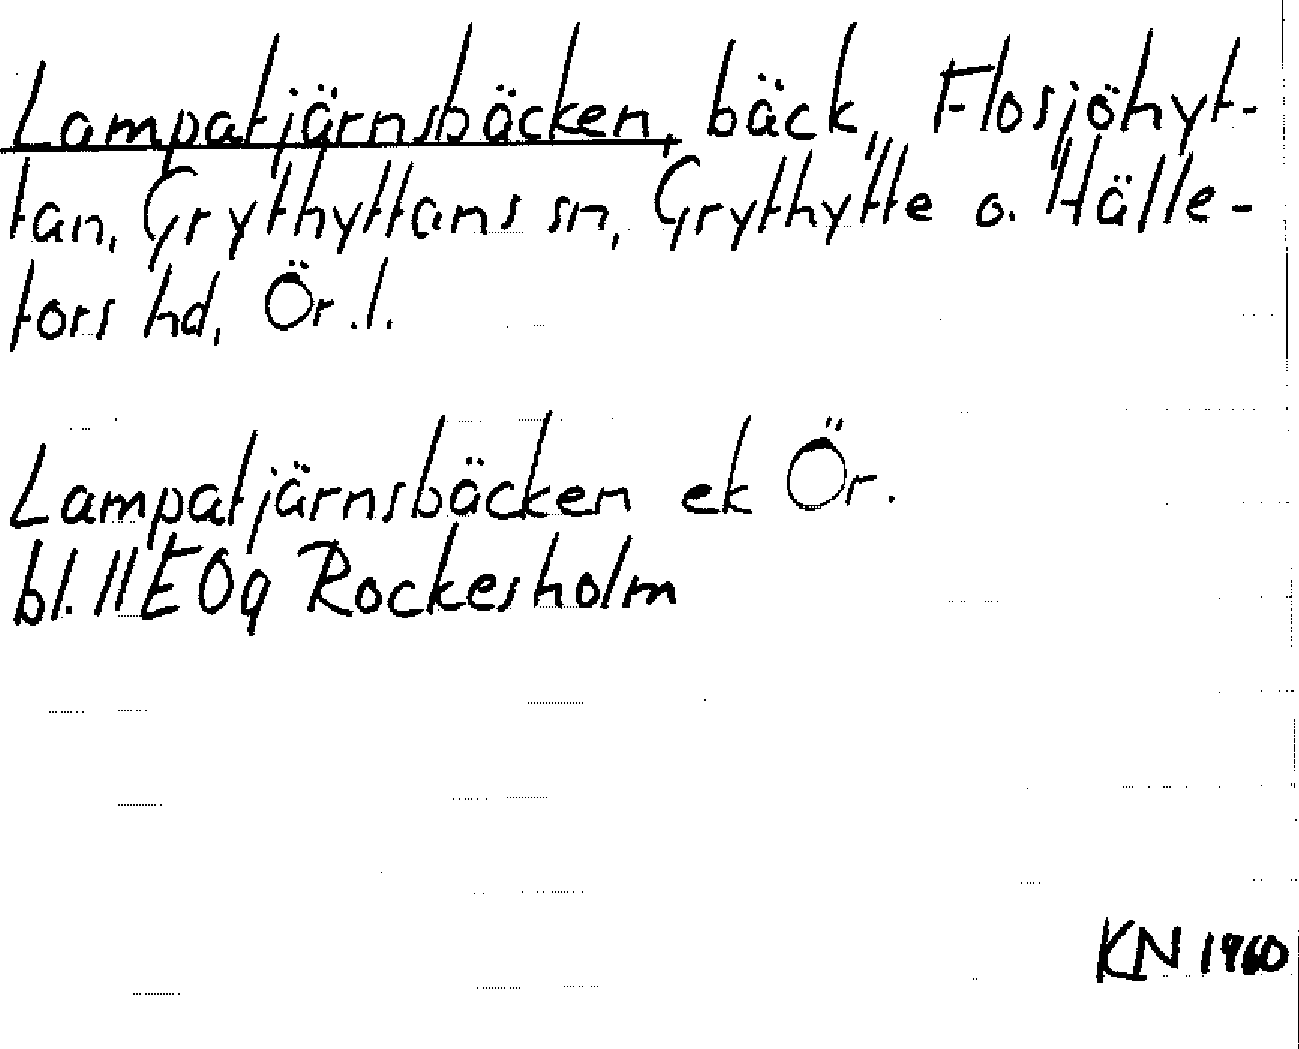 Lampatjärnsbäcken, bäck, Flosjöhyt-
tan, Grythyttans sn, Grythytte o. Hälle-
fors hd, Ör. l.
Lampatjärnsbäcken ek Ör.
bl. 11E 0g Rockesholm
KN 1960